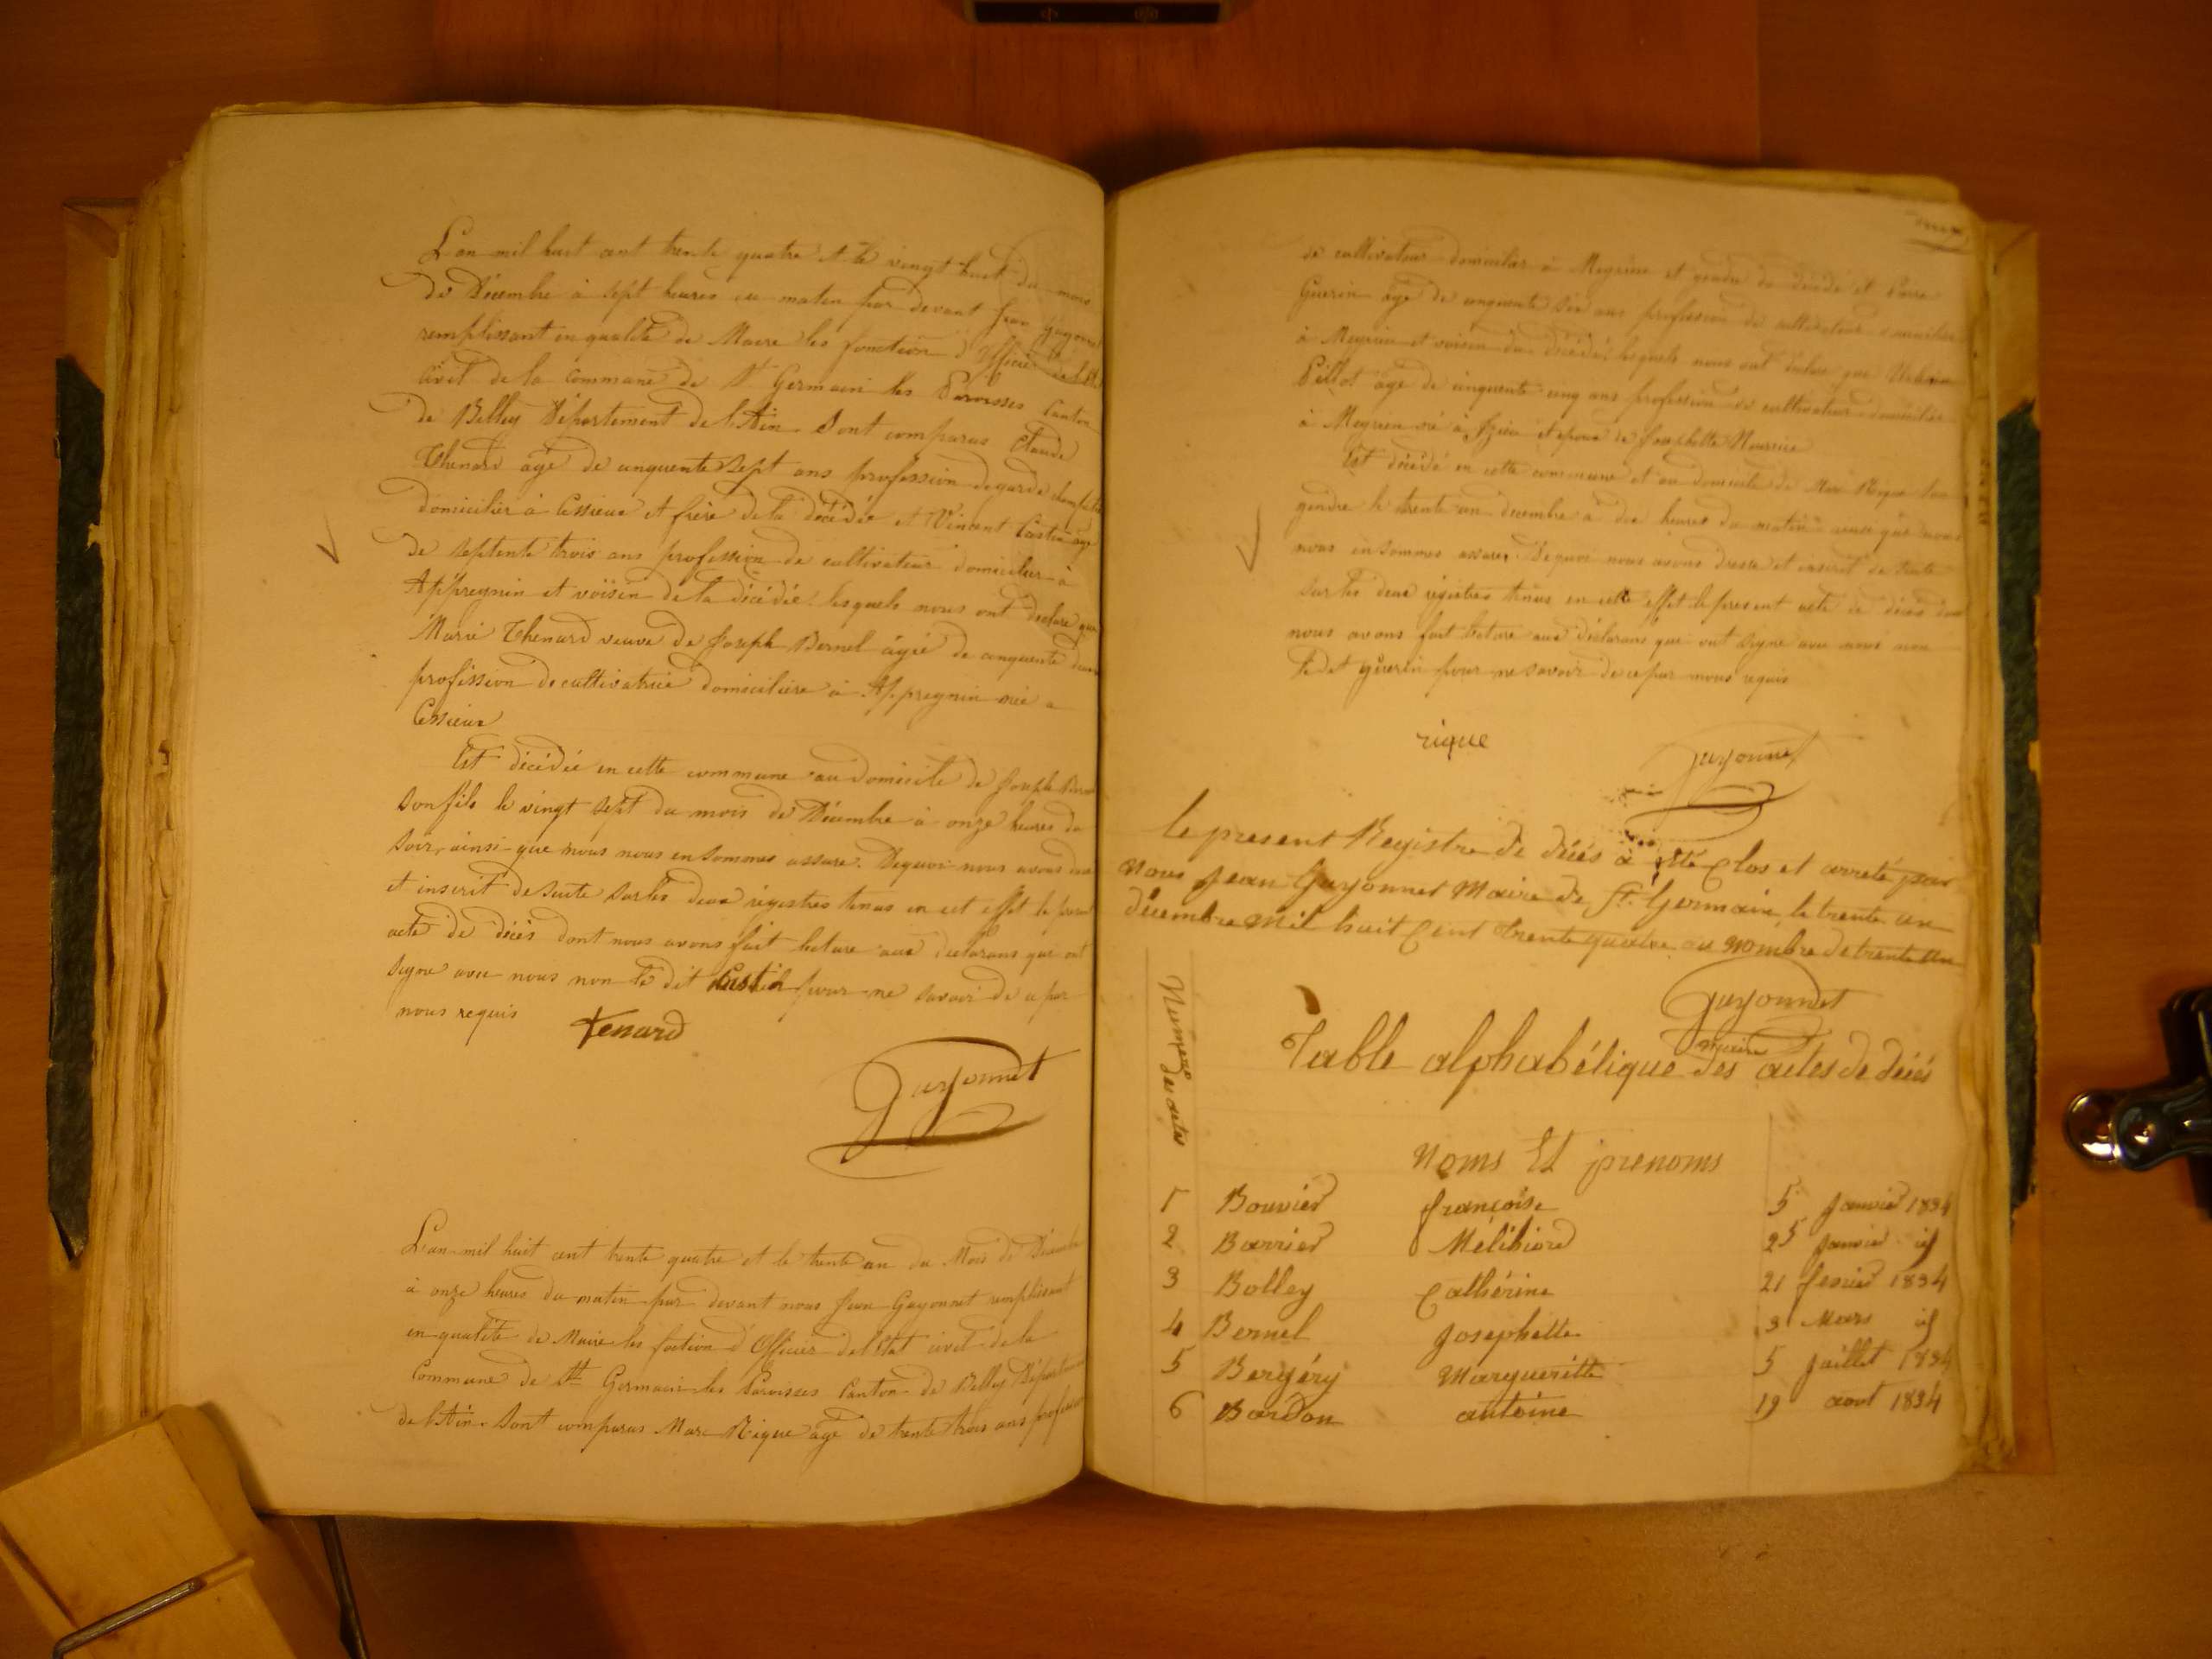 L'an mil huit cent trente quatre et le vingt huit du mois
de Décembre à sept heures du matin par devant Jean Guyonnet
remplissant en qualité de Maire les fonction d'Officier de l'Etat
civil de la commune de St Germain les Paroisses Canton
de Belley Département de l'Ain. Sont comparus Claude
Thenard agé de cinquente sept ans profession de garde champêtre
domicilier à Cessieux et frère de la décédée et Vincent Castin agé
de septente trois ans profession de cultivateur domicilier à
Appregnin et voisin de la décédée. lesquels nous ont déclaré que
Marie Thenard veuve de Joseph Bernel agée de cinquente deux
profession de cultivatrice domicilière à Appregnin née a
Cessieux
Est décédée en cette commune au domicile de Joseph
son fils le vingt sept du mois de Décembre à onze heures du
soir, ainsi que nous nous en sommes assure. Dequoi nous avons
et inscrit de suite sur les deux régistres tenus en cet effet le présent
acte de décès dont nous avons fait lecture aux déclarans qui ont
signé avec nous non le dit Castin pour ne savoir de ce par
nous requis
Tenard
Guyonnet
L'an mil huit cent trente quatre et le trente un du Mois de Décembre
à onze heures du matin par devant nous Jean Guyonnet remplissant
en qualité de Maire les fontion d'Officier del'Etat civil de la
Commune de St Germain les Paroisses Canton de Belley Département
de l'Ain. Sont comparus Marc Rique agé de trente trois ans profession
de cultivateur domicilier à Meyrieu et gendre du décédé et
Guerin agé de cinquente six ans profession de cultivateur domicilier
à Meyrieu et voisin du décédé lesquels nous ont déclaré que
Billot agé de cinquente cinq ans profession de cultivateur domicilier
à Meyrieu né à Izieu et epoux de Josephette
Est décédé en cette commune et au domicile de Marc Rique son
gendre le trente un decembre à dix heures du matin ainsi que nous
nous en sommes assurer. Dequoi nous avons dressé et inscrit de suite
sur les deux régistres tenus en cette effet le present acte de décès dont
nous avons fait lecture aux déclarans qui ont signé avec nous non
ledit guerin pour ne savoir de ce par nous requis
rique
Guyonnet
le present Registre de décés à été Clos et arreté par
Nous Jean Guyonnet Maire de St. Germain le trente un
décembre Mil huit Cent trente quatre au nombre de trente un
Guyonnet
maire
Table alphabétique des actes de décés
Numéro des actes
Noms Et prenoms
1 Bouvier françoise 5 Janvier 1834
2 Barrier Mélchiord 25 Janvier id
3 Bolley Cathérine 21 fevrier 1834
4 Bernel Josephette 3 Mars id
5 Bergéry Margueritte 5 Juillet 1834
6 Bardon antoine 19 aout 1834